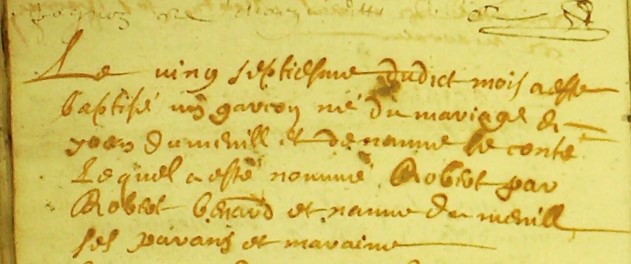 Le ving septiesme dudict mois a este
baptisé ung garcon né du mariage de
yoen dumenill et de nanne le conte
lequel a esté nommé Robert par
Robert benard et nanne du menill
ses parains et maraine